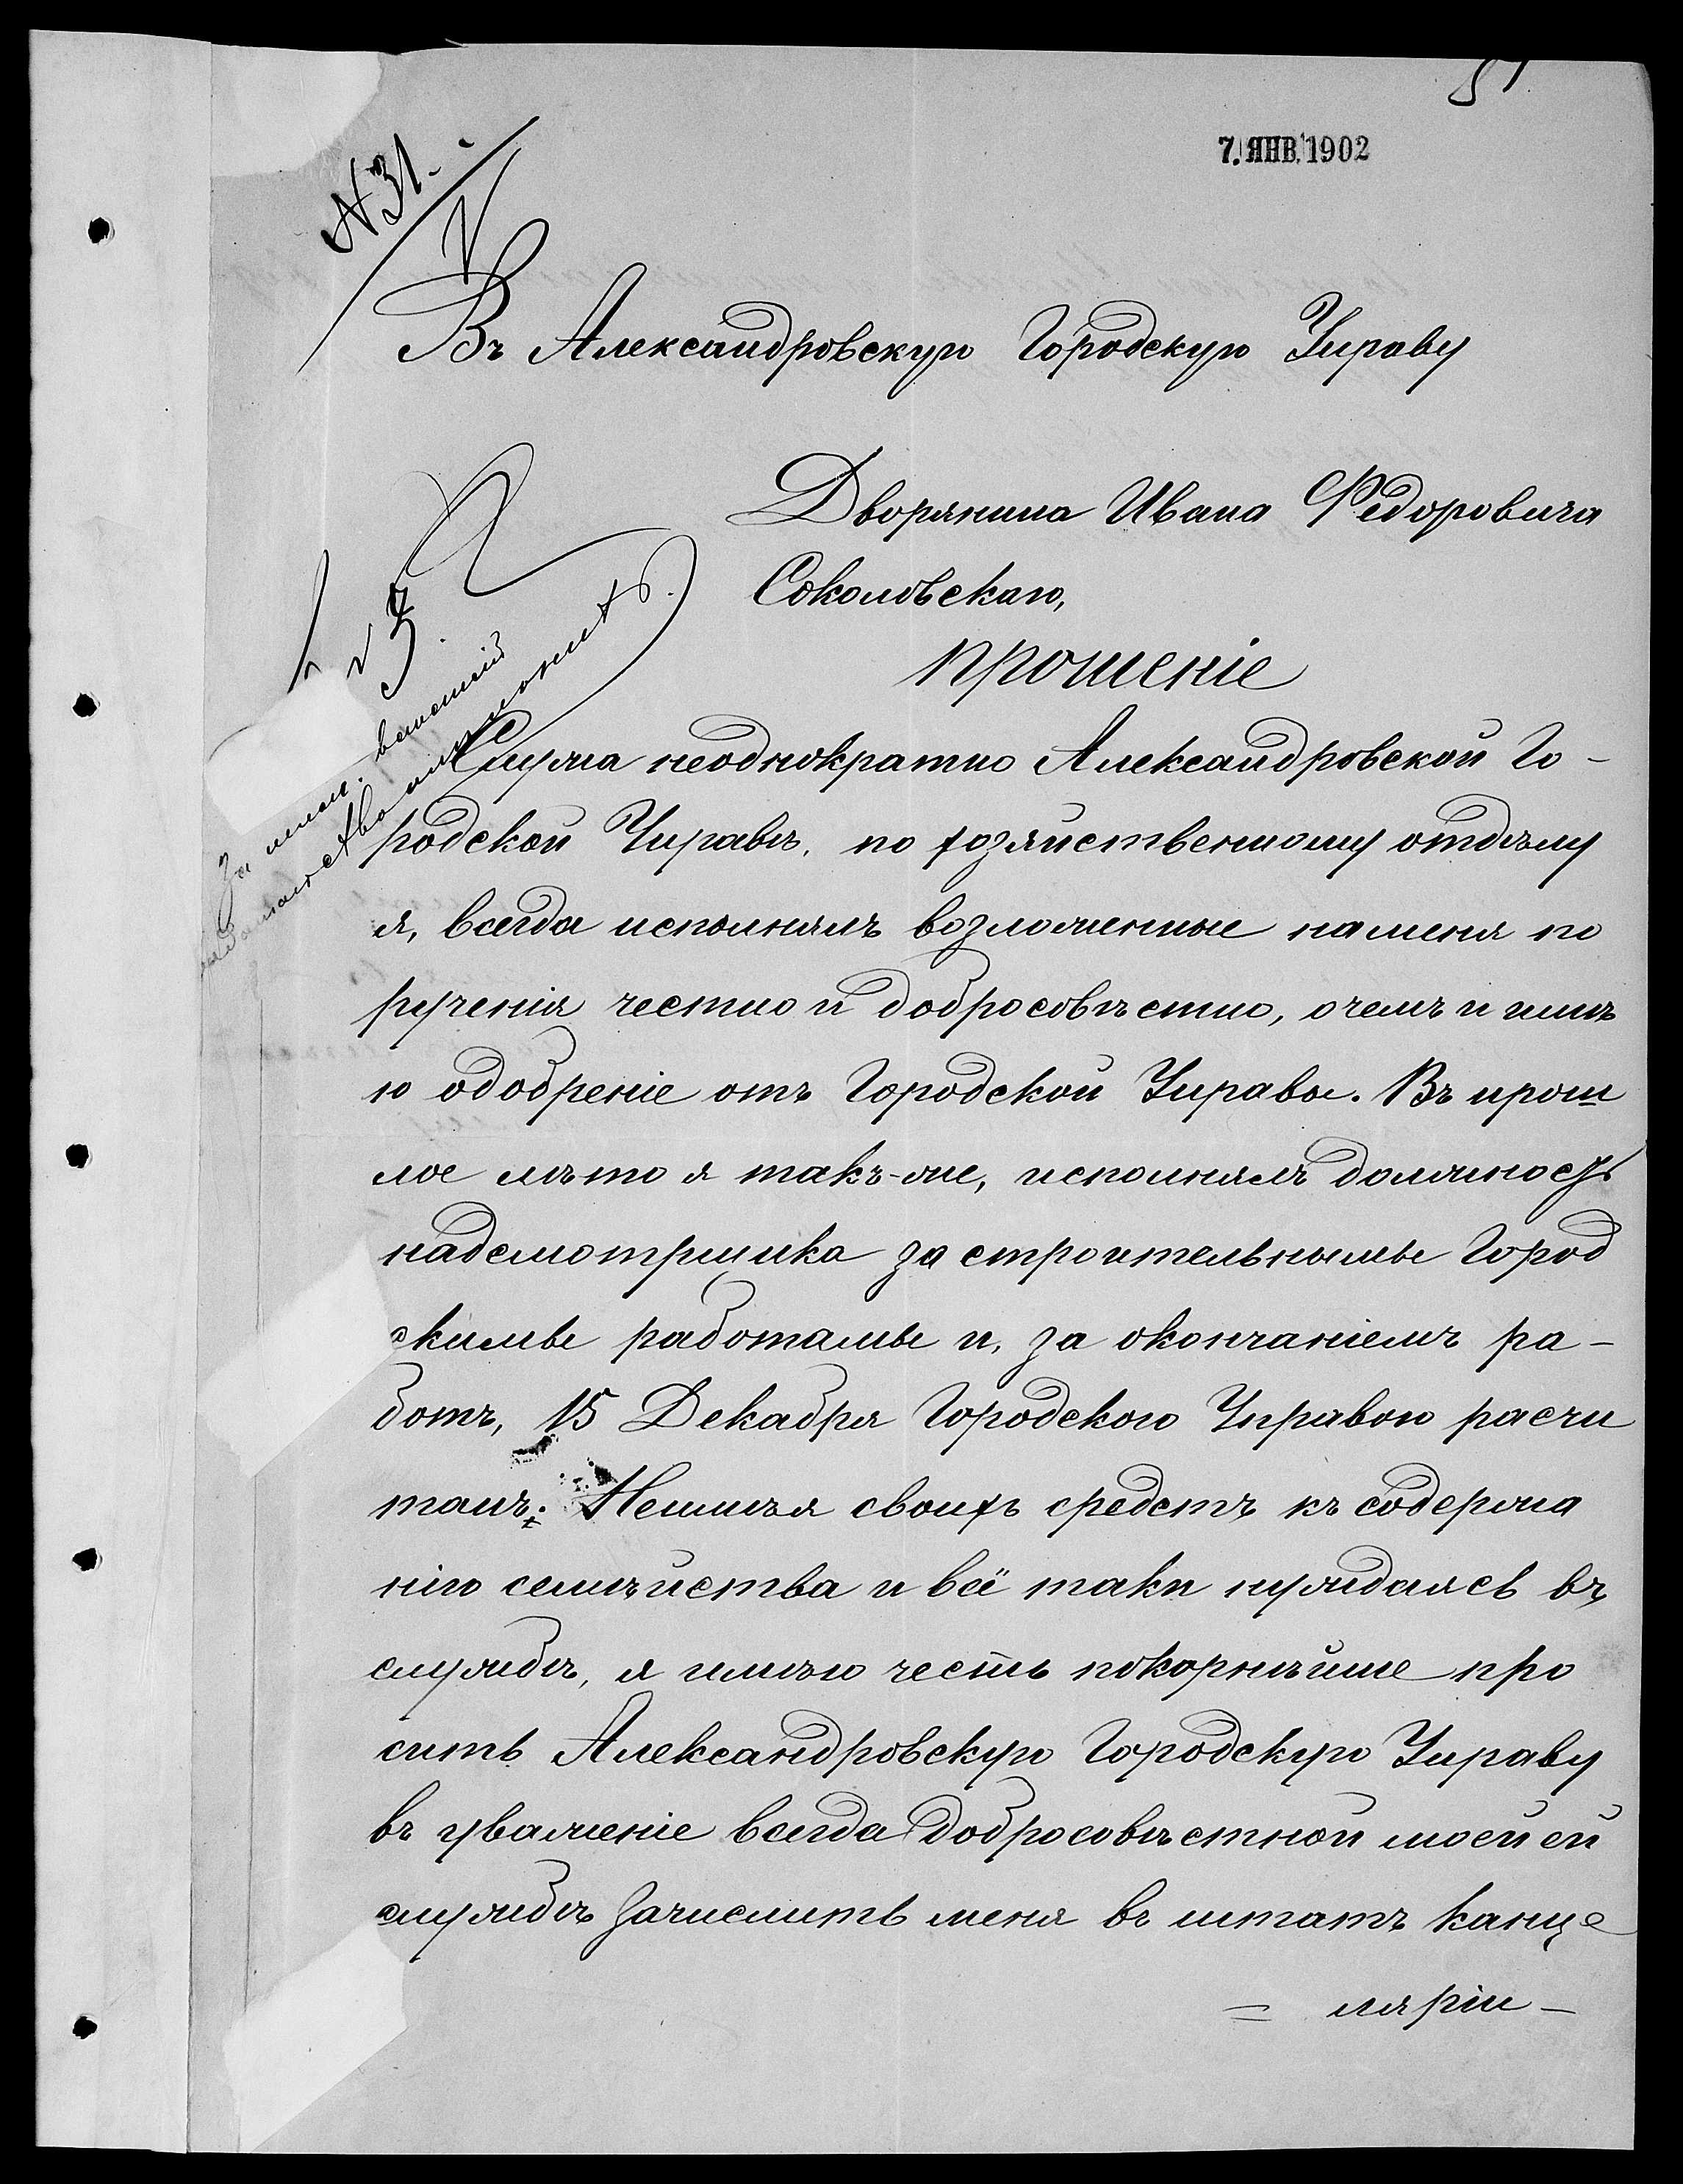 51
7. ЯНВ. 1902
N 31.
Въ Александровскую Городскую Управу
Дворянина Ивана Федоровича
Соколовскаго,
прошеніе
Служа неоднократно Александровской Го-
родской Управѣ, по хозяйственному отдѣлу
я, всегда исполнялъ возложенные на меня по
рученія честно и добросовѣстно, очемъ и имѣ
ю одобреніе отъ Городской Управы. Въ прош
лое лѣто я такъ-же, исполнялъ должность
надсмотрщика за строительнымы Город
скимы работамы и, за окончаніемъ ра-
ботъ, 15 Декабря Городскою Управою расчи
танъ; Неимѣя своихъ средстъ къ содержа
нію семѣйства и всё таки нуждаясь въ
службѣ, я имѣю честь покорнѣйше про
сить Александровскую Городскую Управу
въ уваженіе всегда добросовѣстной моей ей
службѣ зачислить меня въ штатъ канце
= ляріи -
За неим. вакансій